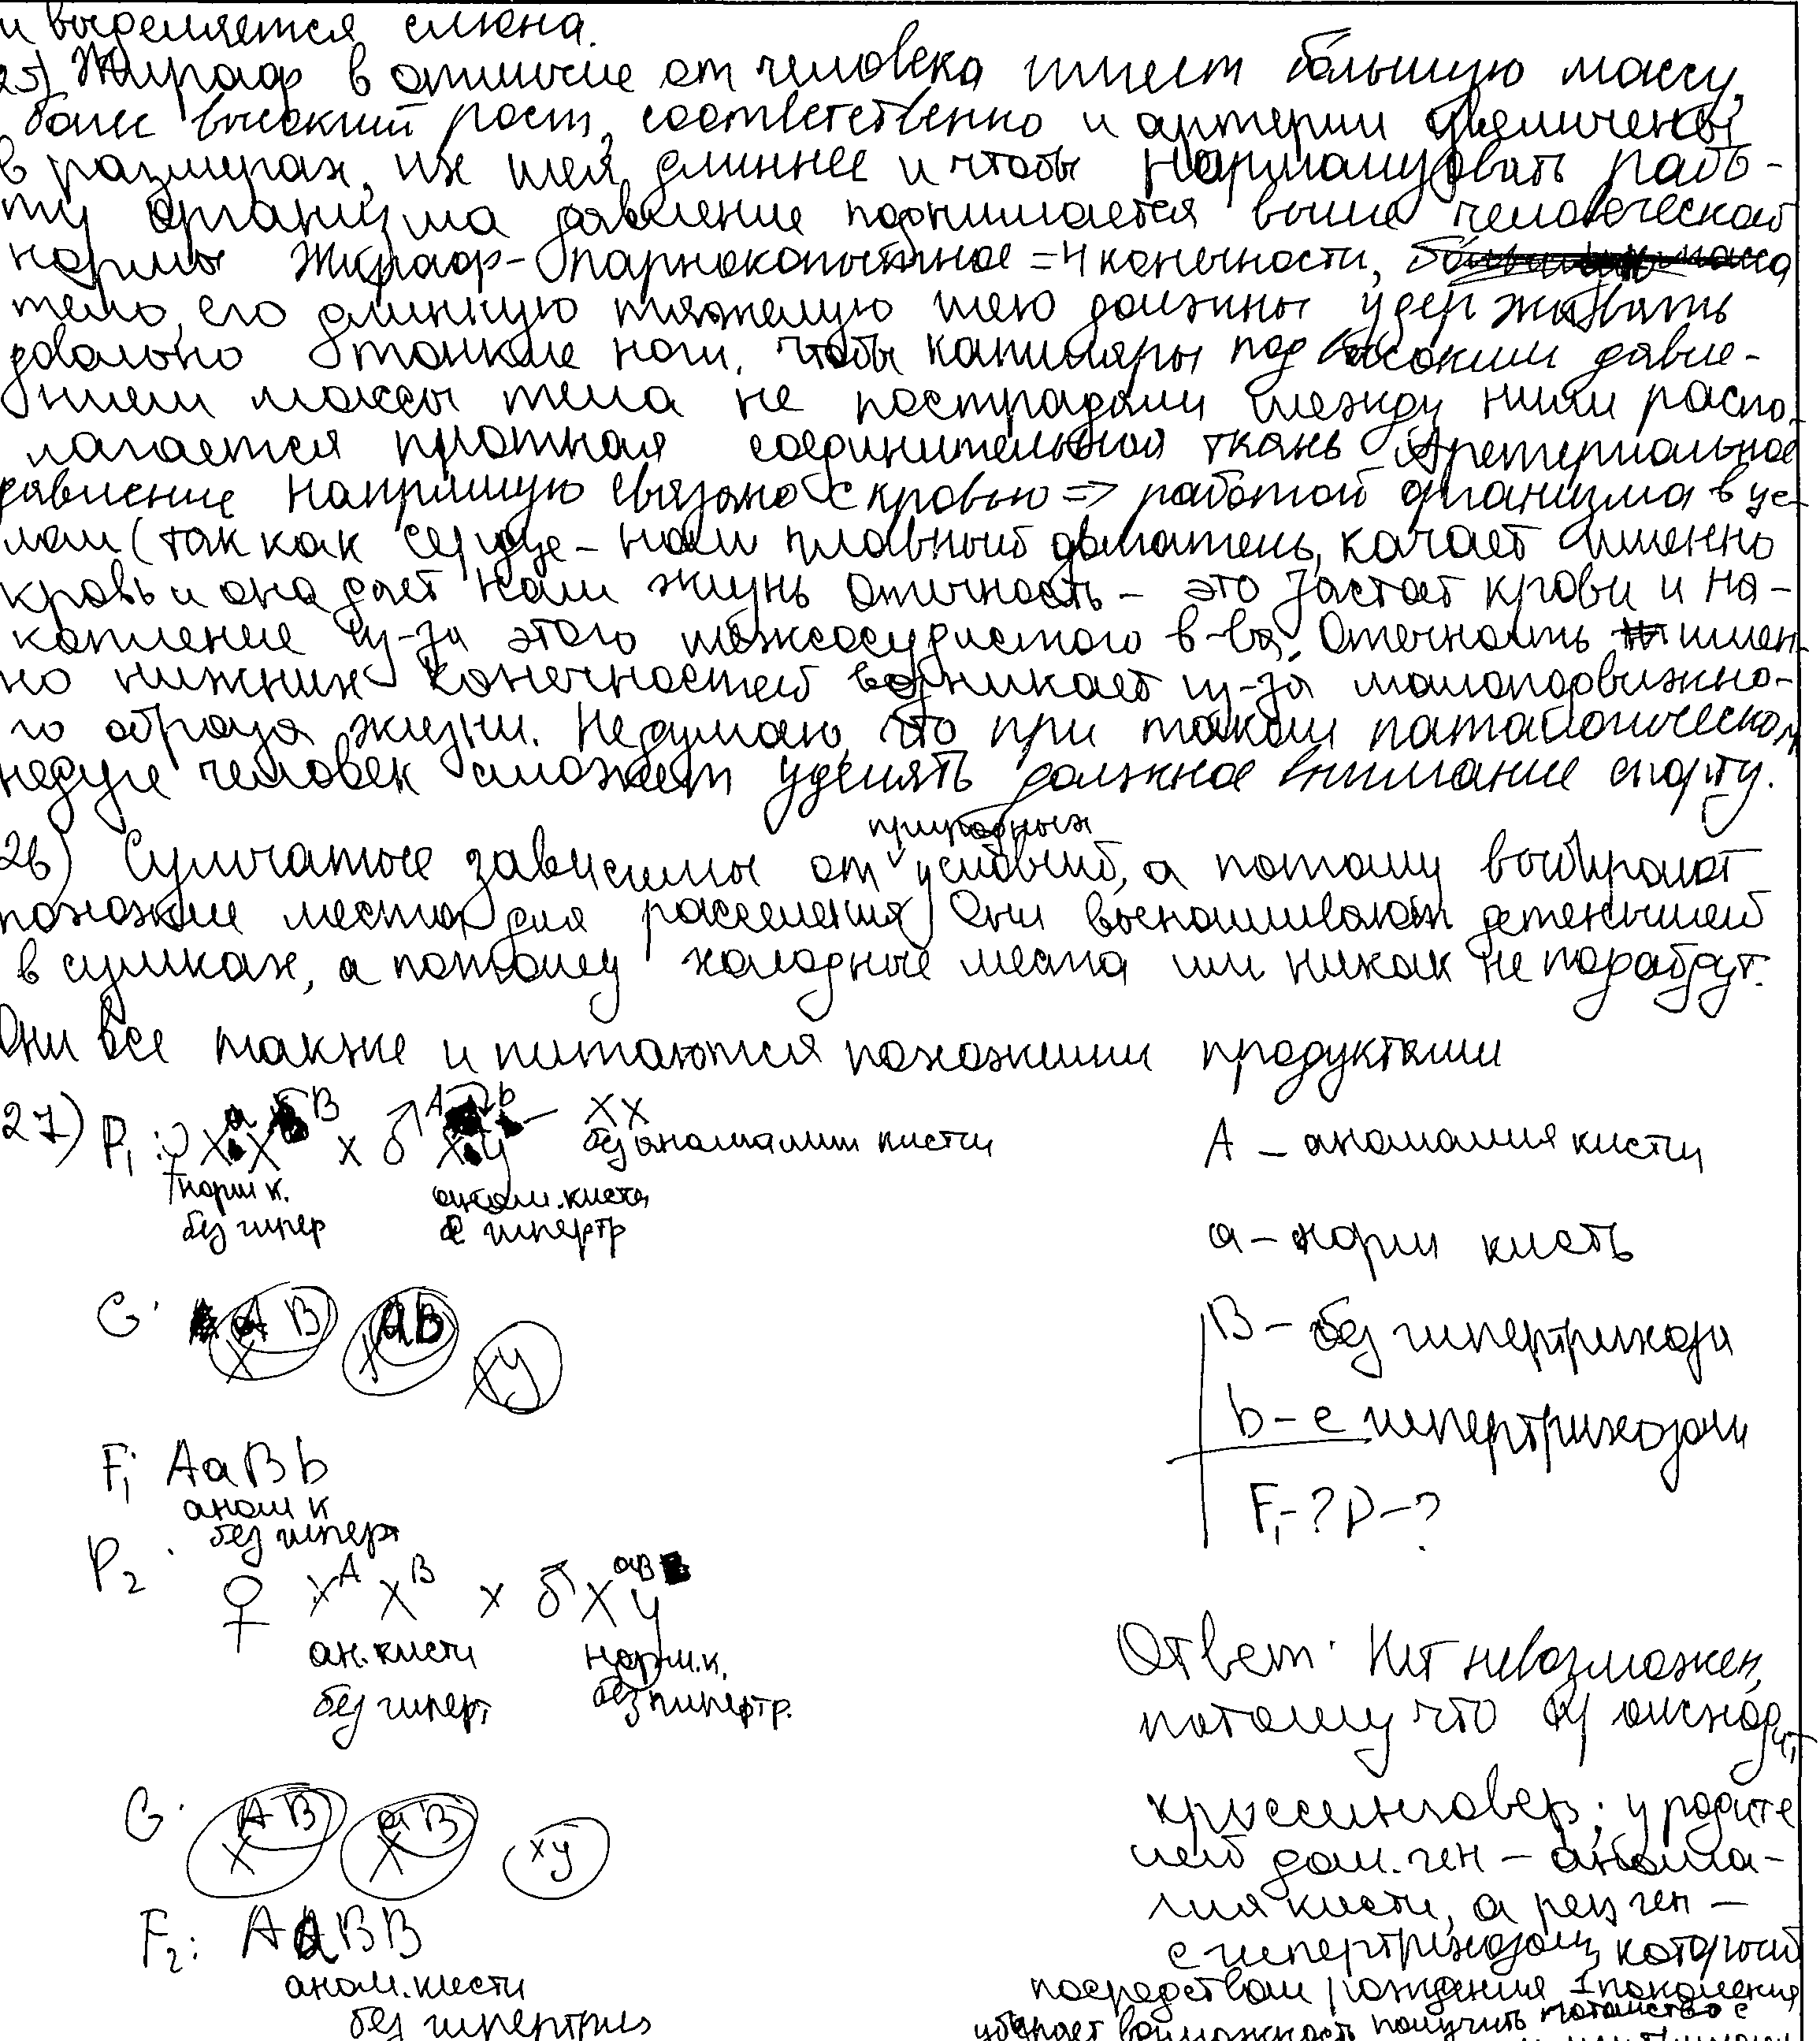 и выделяется слюна.
25) Жираф в отличие от человека имеет бо́льшую массу,
более высокий рост, соответственно и артерии увеличены
в размерах, их шея длиннее и чтобы нормализовать рабо-
ту организма давление поднимается выше человеческой
нормы Жираф - парнокопытное = 4 конечности,
тело, его длинную тяжелую шею должны удерживать
довольно тонкие ноги, чтобы капилляры под высоким давле-
нием массы тела не пострадали между ними распо-
лагается плотная соединительная ткань. Аретериальное
давление напрямую связано с кровью => работой организма в це-
лом (так как сердце - наш главный двигатель, качает именно
кровь и она дает нам жизнь Отечность - это застой крови и на-
копление из-за этого межсосудистого в-ва. Отечность имен-
но нижних конечностей возникает из-за малоподвижно-
го образа жизни. Не думаю, что при таком патологическом
недуге человек сможет уделять должное внимание спорту.
26) Сумчатые зависимы от природных условий, а потому выбирают
похожие места для расселения. Они вынашивают детенышей
в сумках, а потому холодные места им никак не подойдут.
Они все также и питаются похожими продуктами
27) P₁: ♀ XᵃXᴮ x ♂ Xᴬᵇy – XX
без аномалии кисти
норм к. аном. кисть
без гипер с гипертр
A – аномалия кисти
a – норм кисть
B – без гипертрихоза
b – с гипертрихозом
F₁ - ? P - ?
G: XaB XAb Xy
F₁: AaBb
аном к
без гиперт
P₂: ♀ XᴬXᴮ x ♂ Xᵃᴮy
ан. кисти норм. к.
без гиперт без гипертр.
G: XAB XaB xy
F₂: AaBB
аном. кисти
без гипертриз
Ответ: Нет невозможен,
потому что
кроссинговер; у родите
лей дом. ген – анома-
лия кисти, а рец ген –
с гипертрихозом, который
посредством рождения 1 поколения
убирает возможность получить потомство с